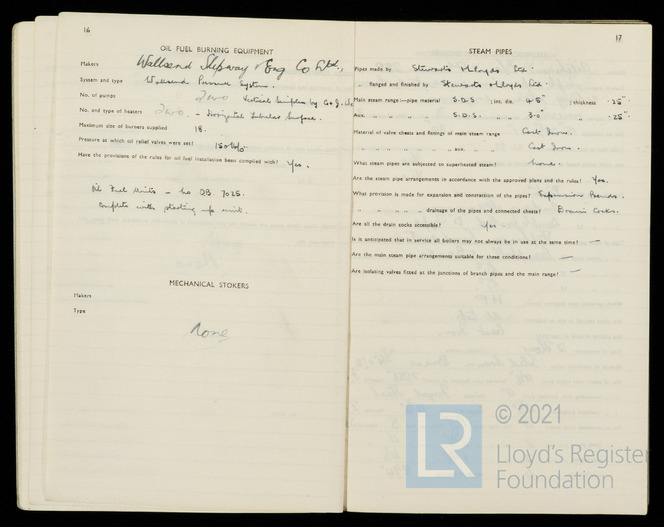 16
OIL FUEL BURNING EQUIPMENT
Makers Wallsend Slipway & Eng Co Ltd.,
System and type Wallsend Pressure System.
No. of pumps Two Vertical Simplex by G & J.
No. and type of heaters Two. - Tubular Surface.
Maximum size of burners supplied 18.
Pressure at which oil relief valves were set? 150
Have the provisions of the rules for oil fuel installation been complied with? Yes.
Oil Fuel Units - No QB 7025.
Complete with starting up unit.
MECHANICAL STOKERS
Makers
Type
None
17
STEAM PIPES
Pipes made by Stewarts & Lloyds Ltd.
„ flanged and finished by Stewarts & Lloyds Ltd.
Main steam range:—pipe material S.D.S. ; int. dia. 4.5" ; thickness .25"
Aux. „ „ S.D.S. „ 3.0" „ .25"
Material of valve chests and fittings of main steam range Cast Iron.
„ „ „ „ „ aux. „ Cast Iron.
What steam pipes are subjected to superheated steam? None.
Are the steam pipe arrangements in accordance with the approved plans and the rules? Yes.
What provision is made for expansion and contraction of the pipes? Expansion Bends.
„ „ „ „ „ drainage of the pipes and connected chests? Drain Cocks.
Are all the drain cocks accessible? Yes
Is it anticipated that in service all boilers may not always be in use at the same time? —
Are the main steam pipe arrangements suitable for these conditions? —
Are isolating valves fitted at the junctions of branch pipes and the main range? —
LR
© 2021
Lloyd's Register
Foundation